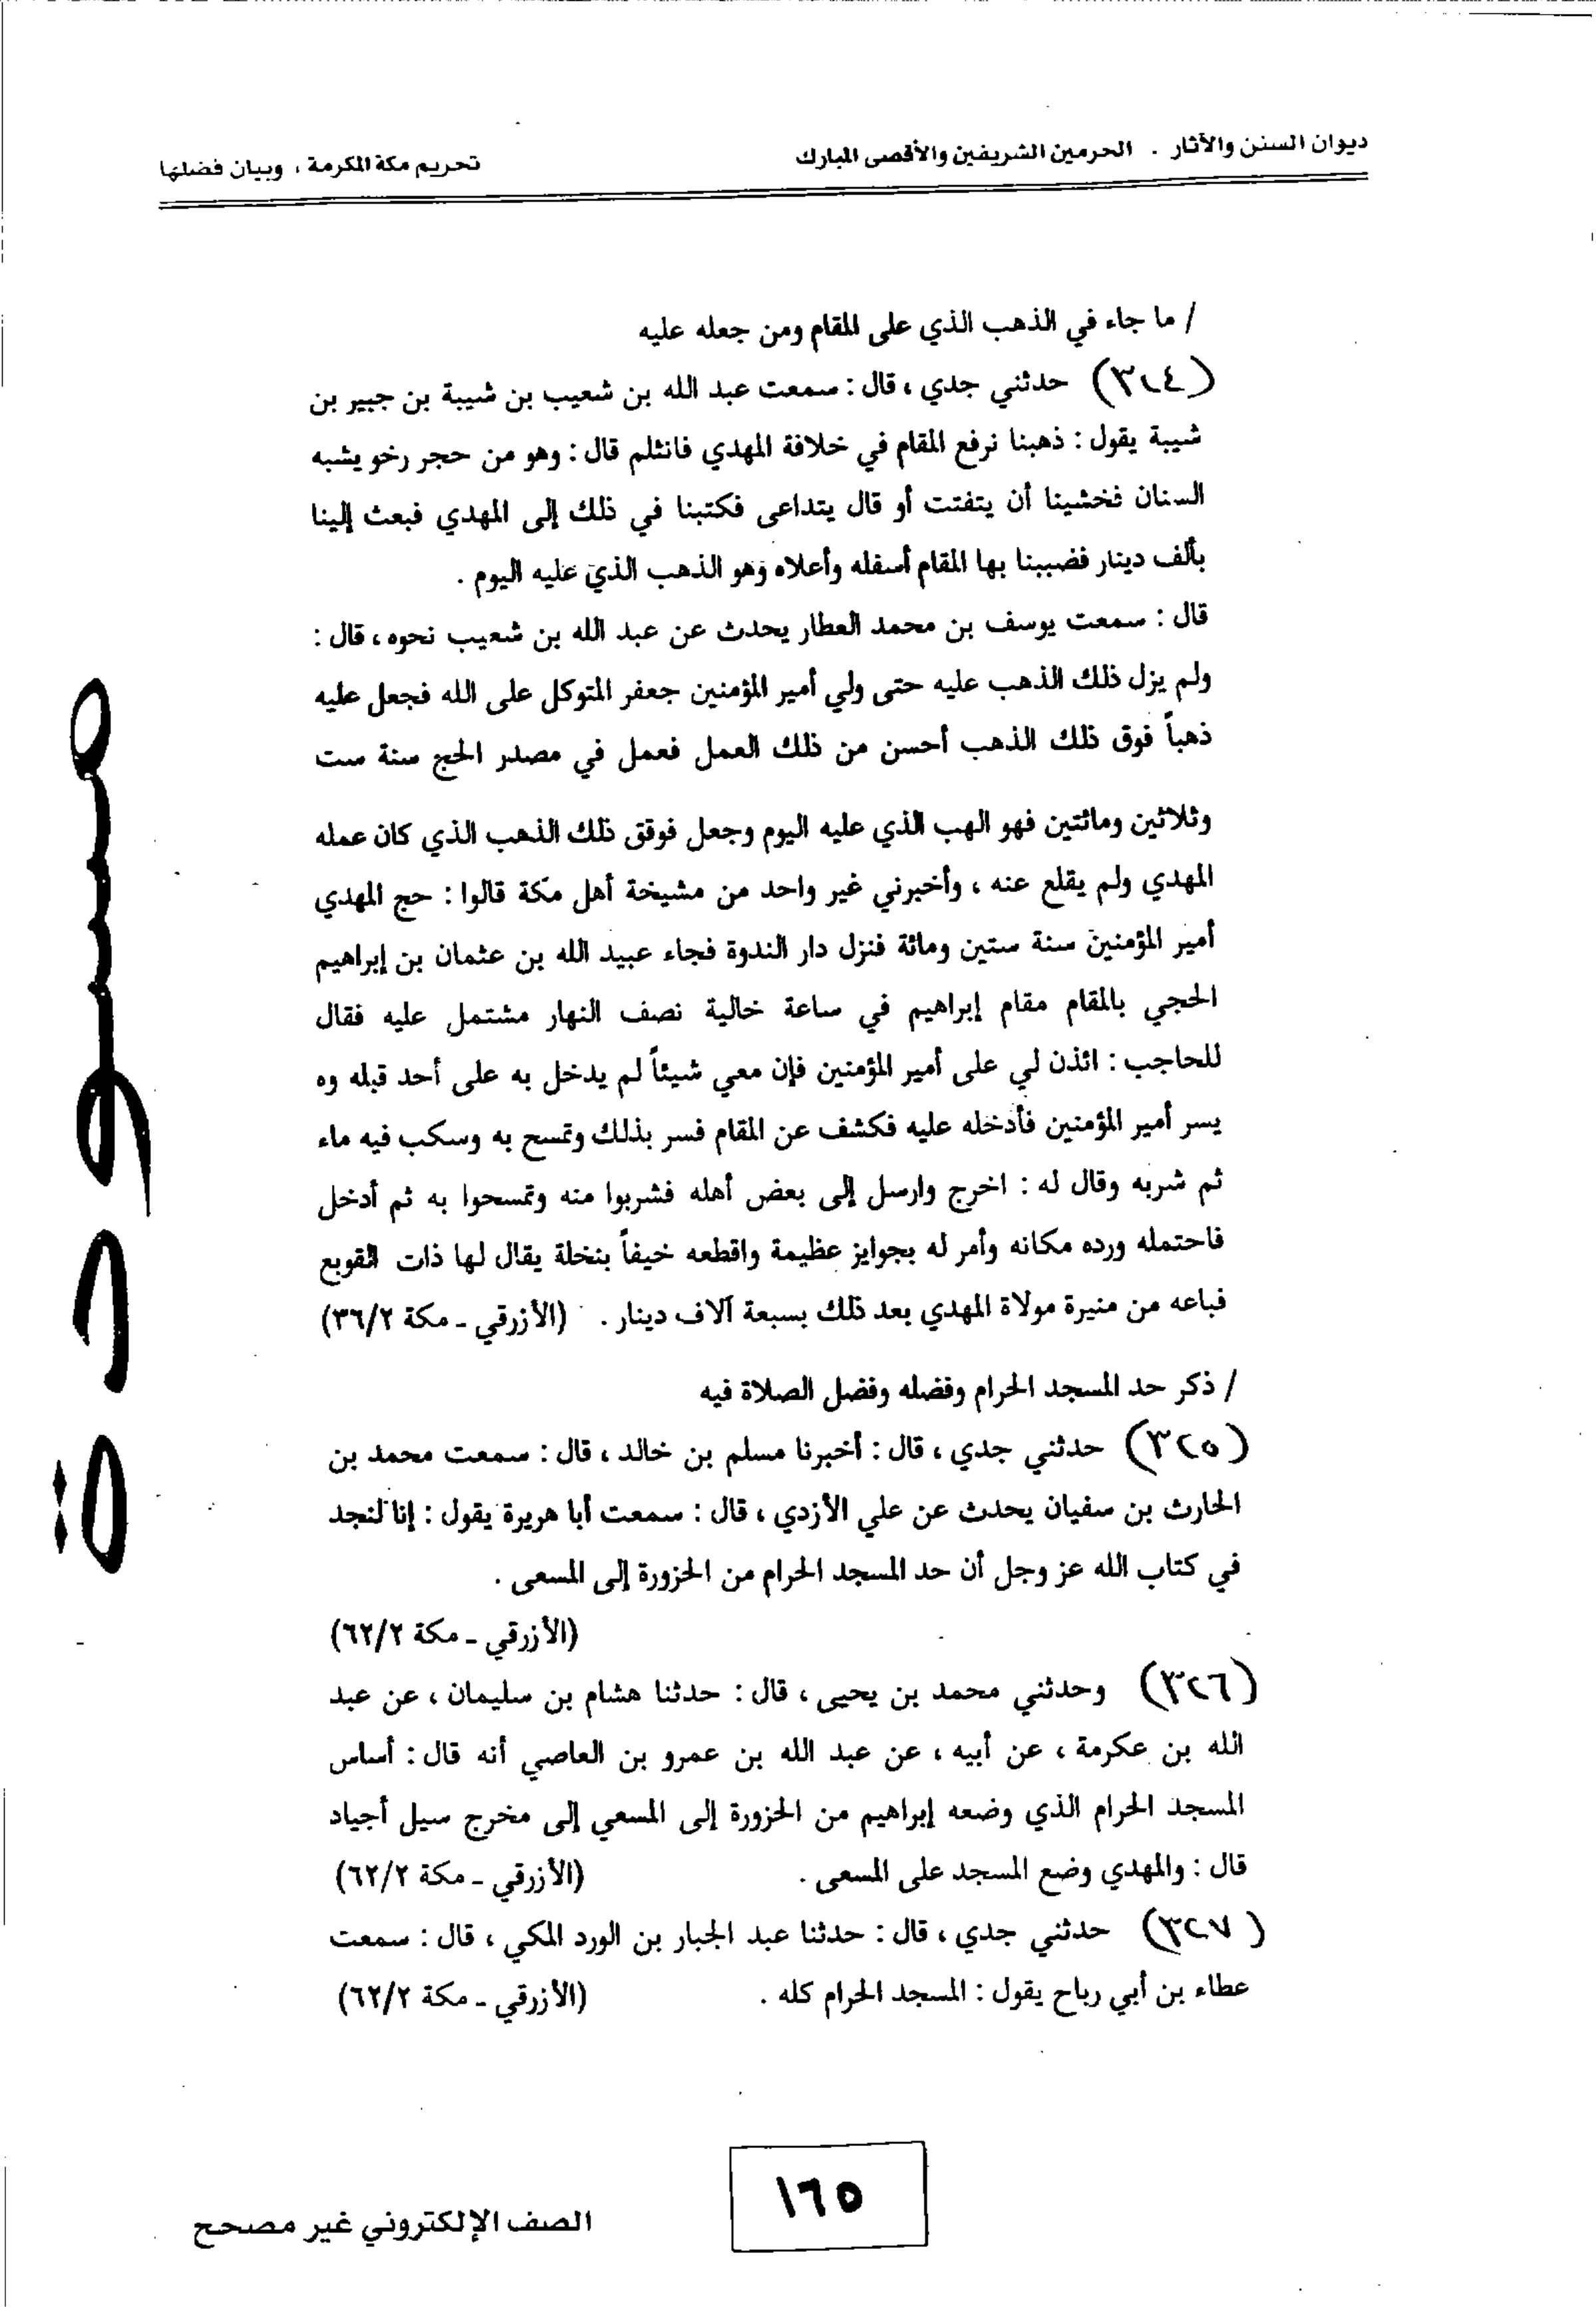 ديوان السنن والآثار . الحرمين الشريفين والأقصى المبارك
تحريم مكة المكرمة ، وبيان فضلها
/ ما جاء في الذهب الذي على المقام ومن جعله عليه
(٣٢٤) حدثني جدي ، قال : سمعت عبد الله بن شعيب بن شيبة بن جبير بن
شيبة يقول : ذهبنا نرفع المقام في خلافة المهدي فانثلم قال : وهو من حجر رخو يشبه
السنان فخشينا أن يتفتت أو قال يتداعى فكتبنا في ذلك إلى المهدي فبعث إلينا
بألف دينار فضببنا بها المقام أسفله وأعلاه وهو الذهب الذي عليه اليوم .
قال : سمعت يوسف بن محمد العطار يحدث عن عبد الله بن شعيب نحوه ، قال :
ولم يزل ذلك الذهب عليه حتى ولي أمير المؤمنين جعفر المتوكل على الله فجعل عليه
ذهباً فوق ذلك الذهب أحسن من ذلك العمل فعمل في مصدر الحج سنة ست
وثلاثين ومائتين فهو الهب الذي عليه اليوم وجعل فوقق ذلك الذهب الذي كان عمله
المهدي ولم يقلع عنه ، وأخبرني غير واحد من مشيخة أهل مكة قالوا : حج المهدي
أمير المؤمنين سنة ستين ومائة فنزل دار الندوة فجاء عبيد الله بن عثمان بن إبراهيم
الحجبي بالمقام مقام إبراهيم في ساعة خالية نصف النهار مشتمل عليه فقال
للحاجب : ائذن لي على أمير المؤمنين فإن معي شيئاً لم يدخل به على أحد قبله وه
يسر أمير المؤمنين فأدخله عليه فكشف عن المقام فسر بذلك وتمسح به وسكب فيه ماء
ثم شربه وقال له : اخرج وارسل إلى بعض أهله فشربوا منه وتمسحوا به ثم أدخل
فاحتمله ورده مكانه وأمر له بجوايز عظيمة واقطعه خيفاً بنخلة يقال لها ذات القوبع
فباعه من منيرة مولاة المهدي بعد ذلك بسبعة آلاف دينار . (الأزرقي ـ مكة ٣٦/٢)
/ ذكر حد المسجد الحرام وفضله وفضل الصلاة فيه
(٣٢٥) حدثني جدي ، قال : أخبرنا مسلم بن خالد ، قال : سمعت محمد بن
الحارث بن سفيان يحدث عن علي الأزدي ، قال : سمعت أبا هريرة يقول : إنا لنجد
في كتاب الله عز وجل أن حد المسجد الحرام من الحزورة إلى المسعى .
(الأزرقي ـ مكة ٦٢/٢)
(٣٢٦) وحدثني محمد بن يحيى ، قال : حدثنا هشام بن سليمان ، عن عبد
الله بن عكرمة ، عن أبيه ، عن عبد الله بن عمرو بن العاصي أنه قال : أساس
المسجد الحرام الذي وضعه إبراهيم من الحزورة إلى المسعي إلى مخرج سيل أجياد
قال : والمهدي وضع المسجد على المسعى . (الأزرقي ـ مكة ٦٢/٢)
(٣٢٧) حدثني جدي ، قال : حدثنا عبد الجبار بن الورد المكي ، قال : سمعت
عطاء بن أبي رباح يقول : المسجد الحرام كله . (الأزرقي ـ مكة ٦٢/٢)
١٦٥
الصف الإلكتروني غير مصحح
مسودة